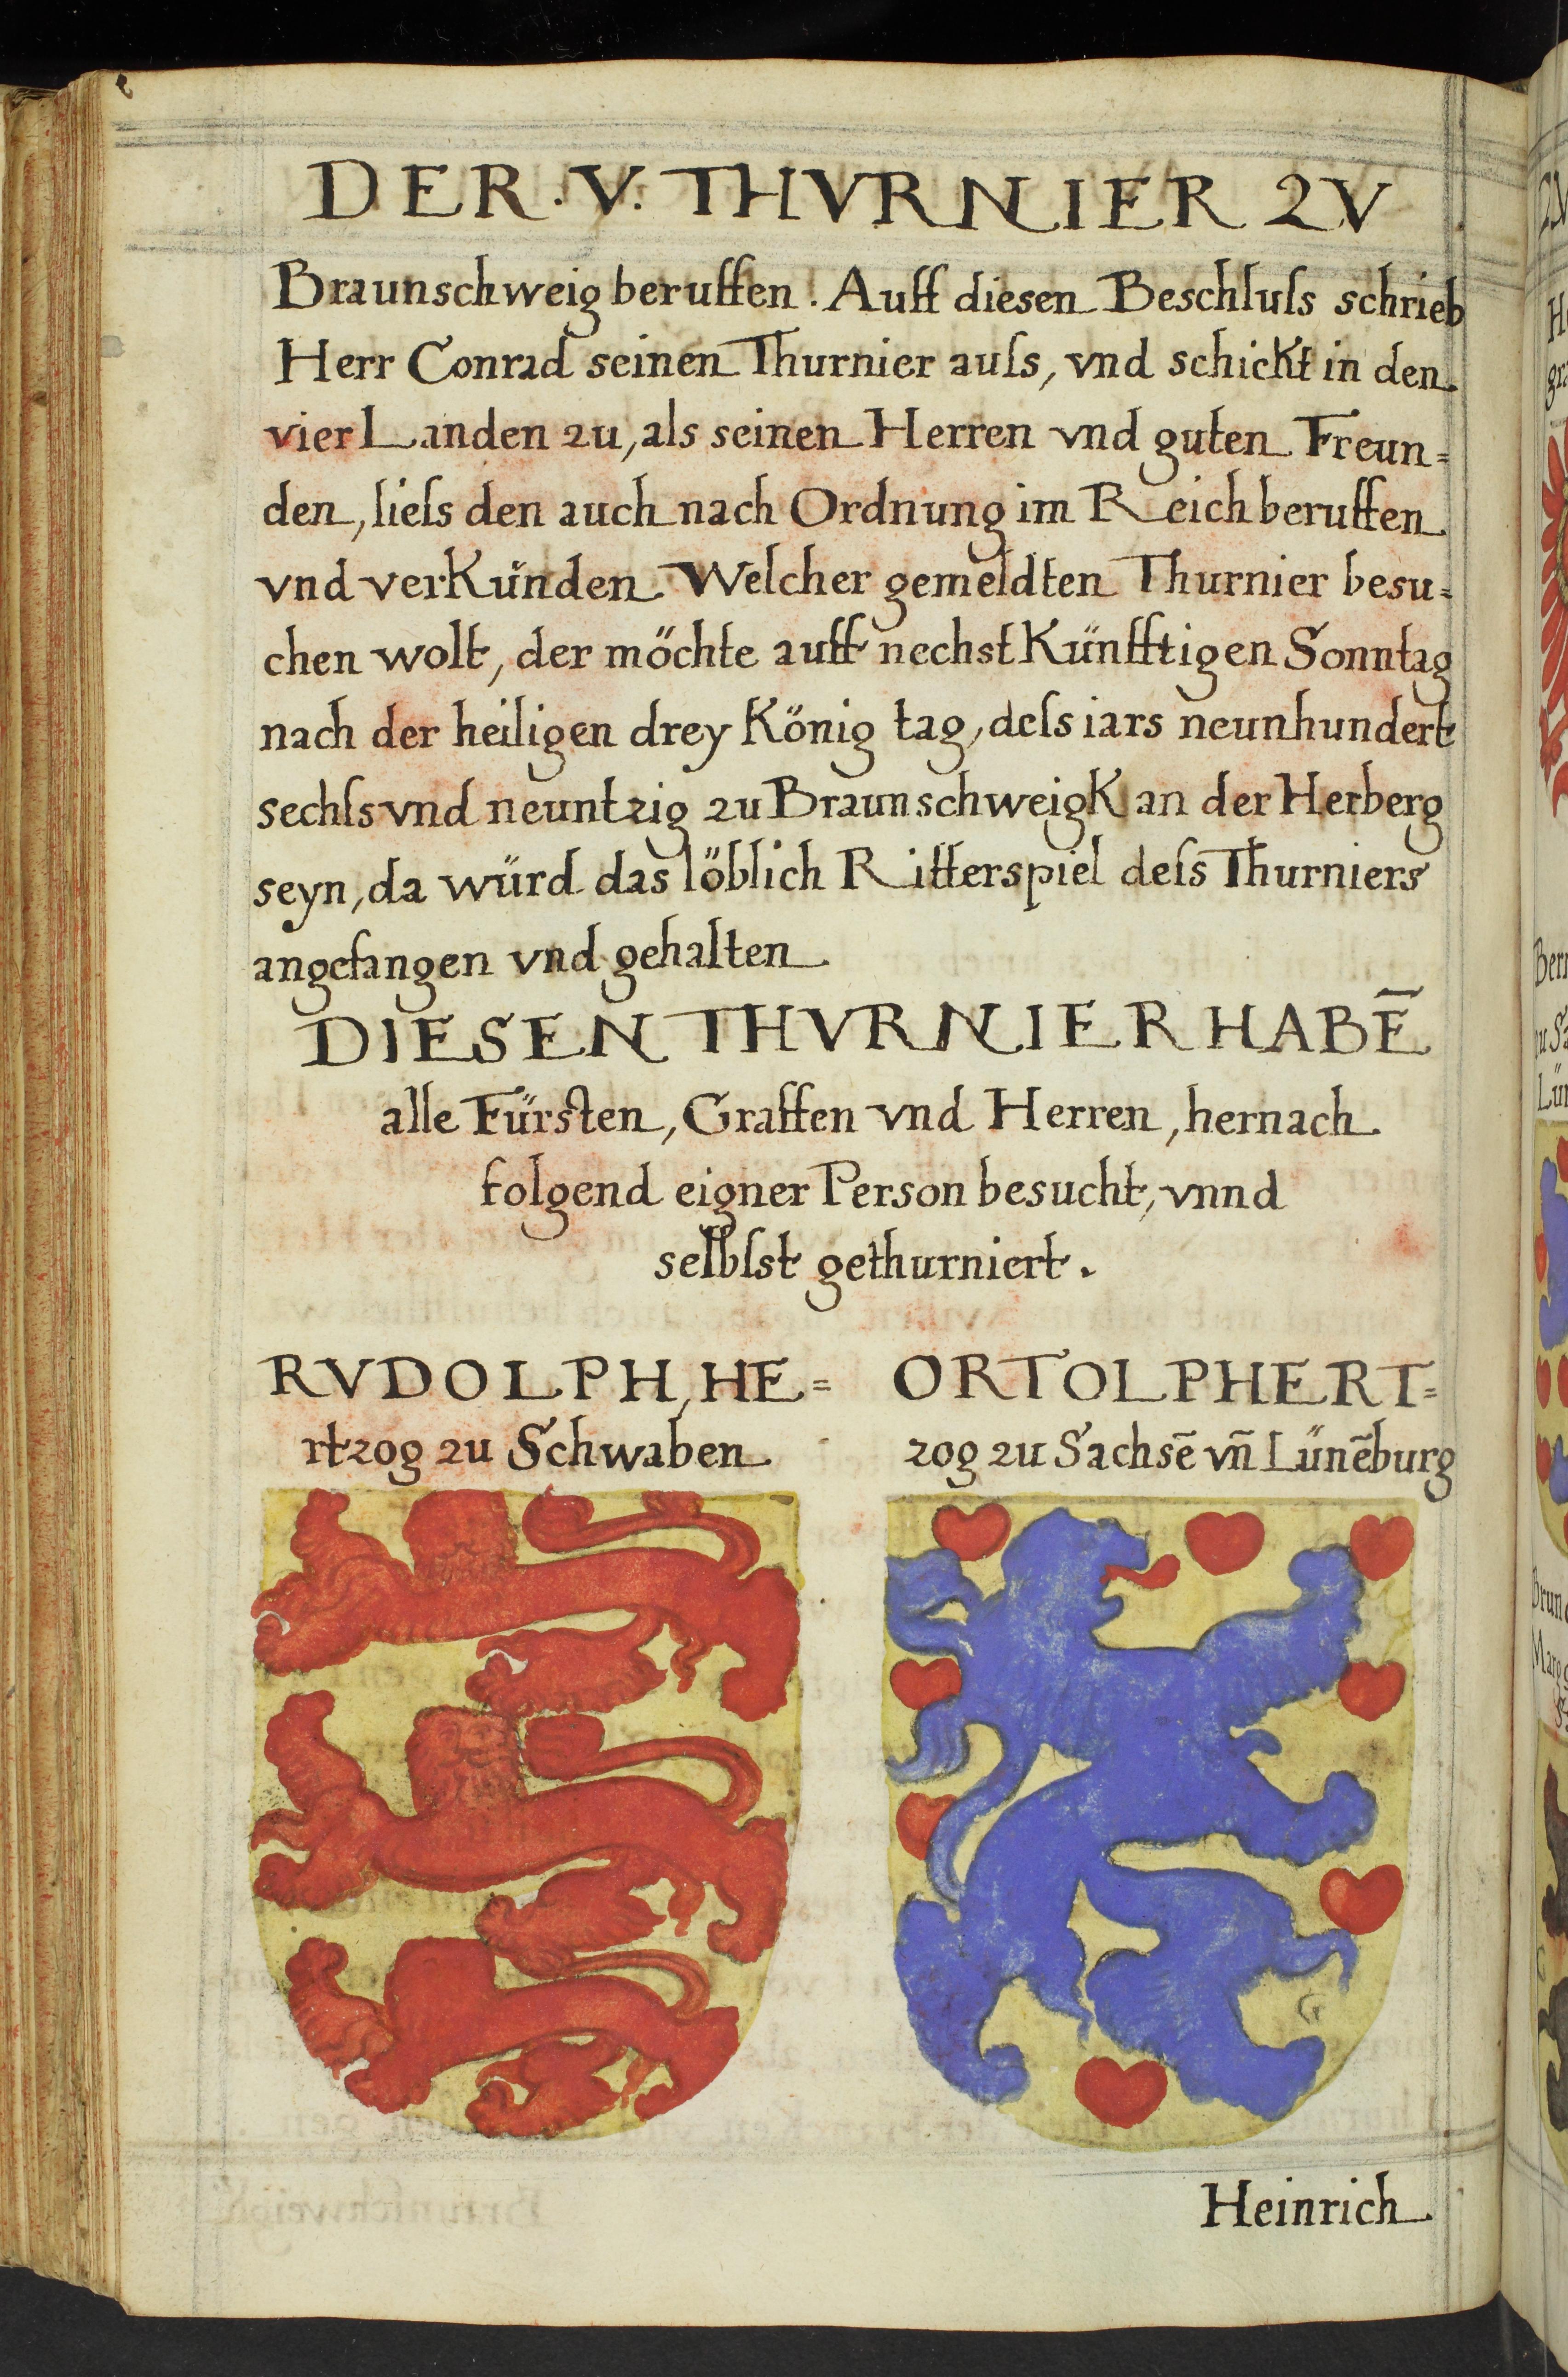 DER . V. THVRNIER ZV
Braunschweig beruffen. Auff diesen Beschluss schrieb
Herr Conrad seinen Thurnier auss, vnd schickt in den
vier Landen zu, als seinen Herren vnd guten Freun=
den, liess den auch nach Ordnung im Reich beruffen
vnd verkünden. Welcher gemeldten Thurnier besu=
chen wolt, der möchte auff nechst künfftigen Sonntag
nach der heiligen drey König tag, dess iars neunhundert
sechs vnd neuntzig zu Braunschweigk an der Herberg
seyn, da würd das löblich Ritterspiel dess Thurniers
angefangen vnd gehalten
DIESEN THVRNIER HABĒ
alle Fürsten, Graffen vnd Herren, hernach
folgend eigner Person besucht, vnnd
selbst gethurniert.
RVDOLPH, HE=
rtzog zu Schwaben
ORTOLPH ERT=
zog zu Sachsē vn̄ Lünēburg
G
Heinrich